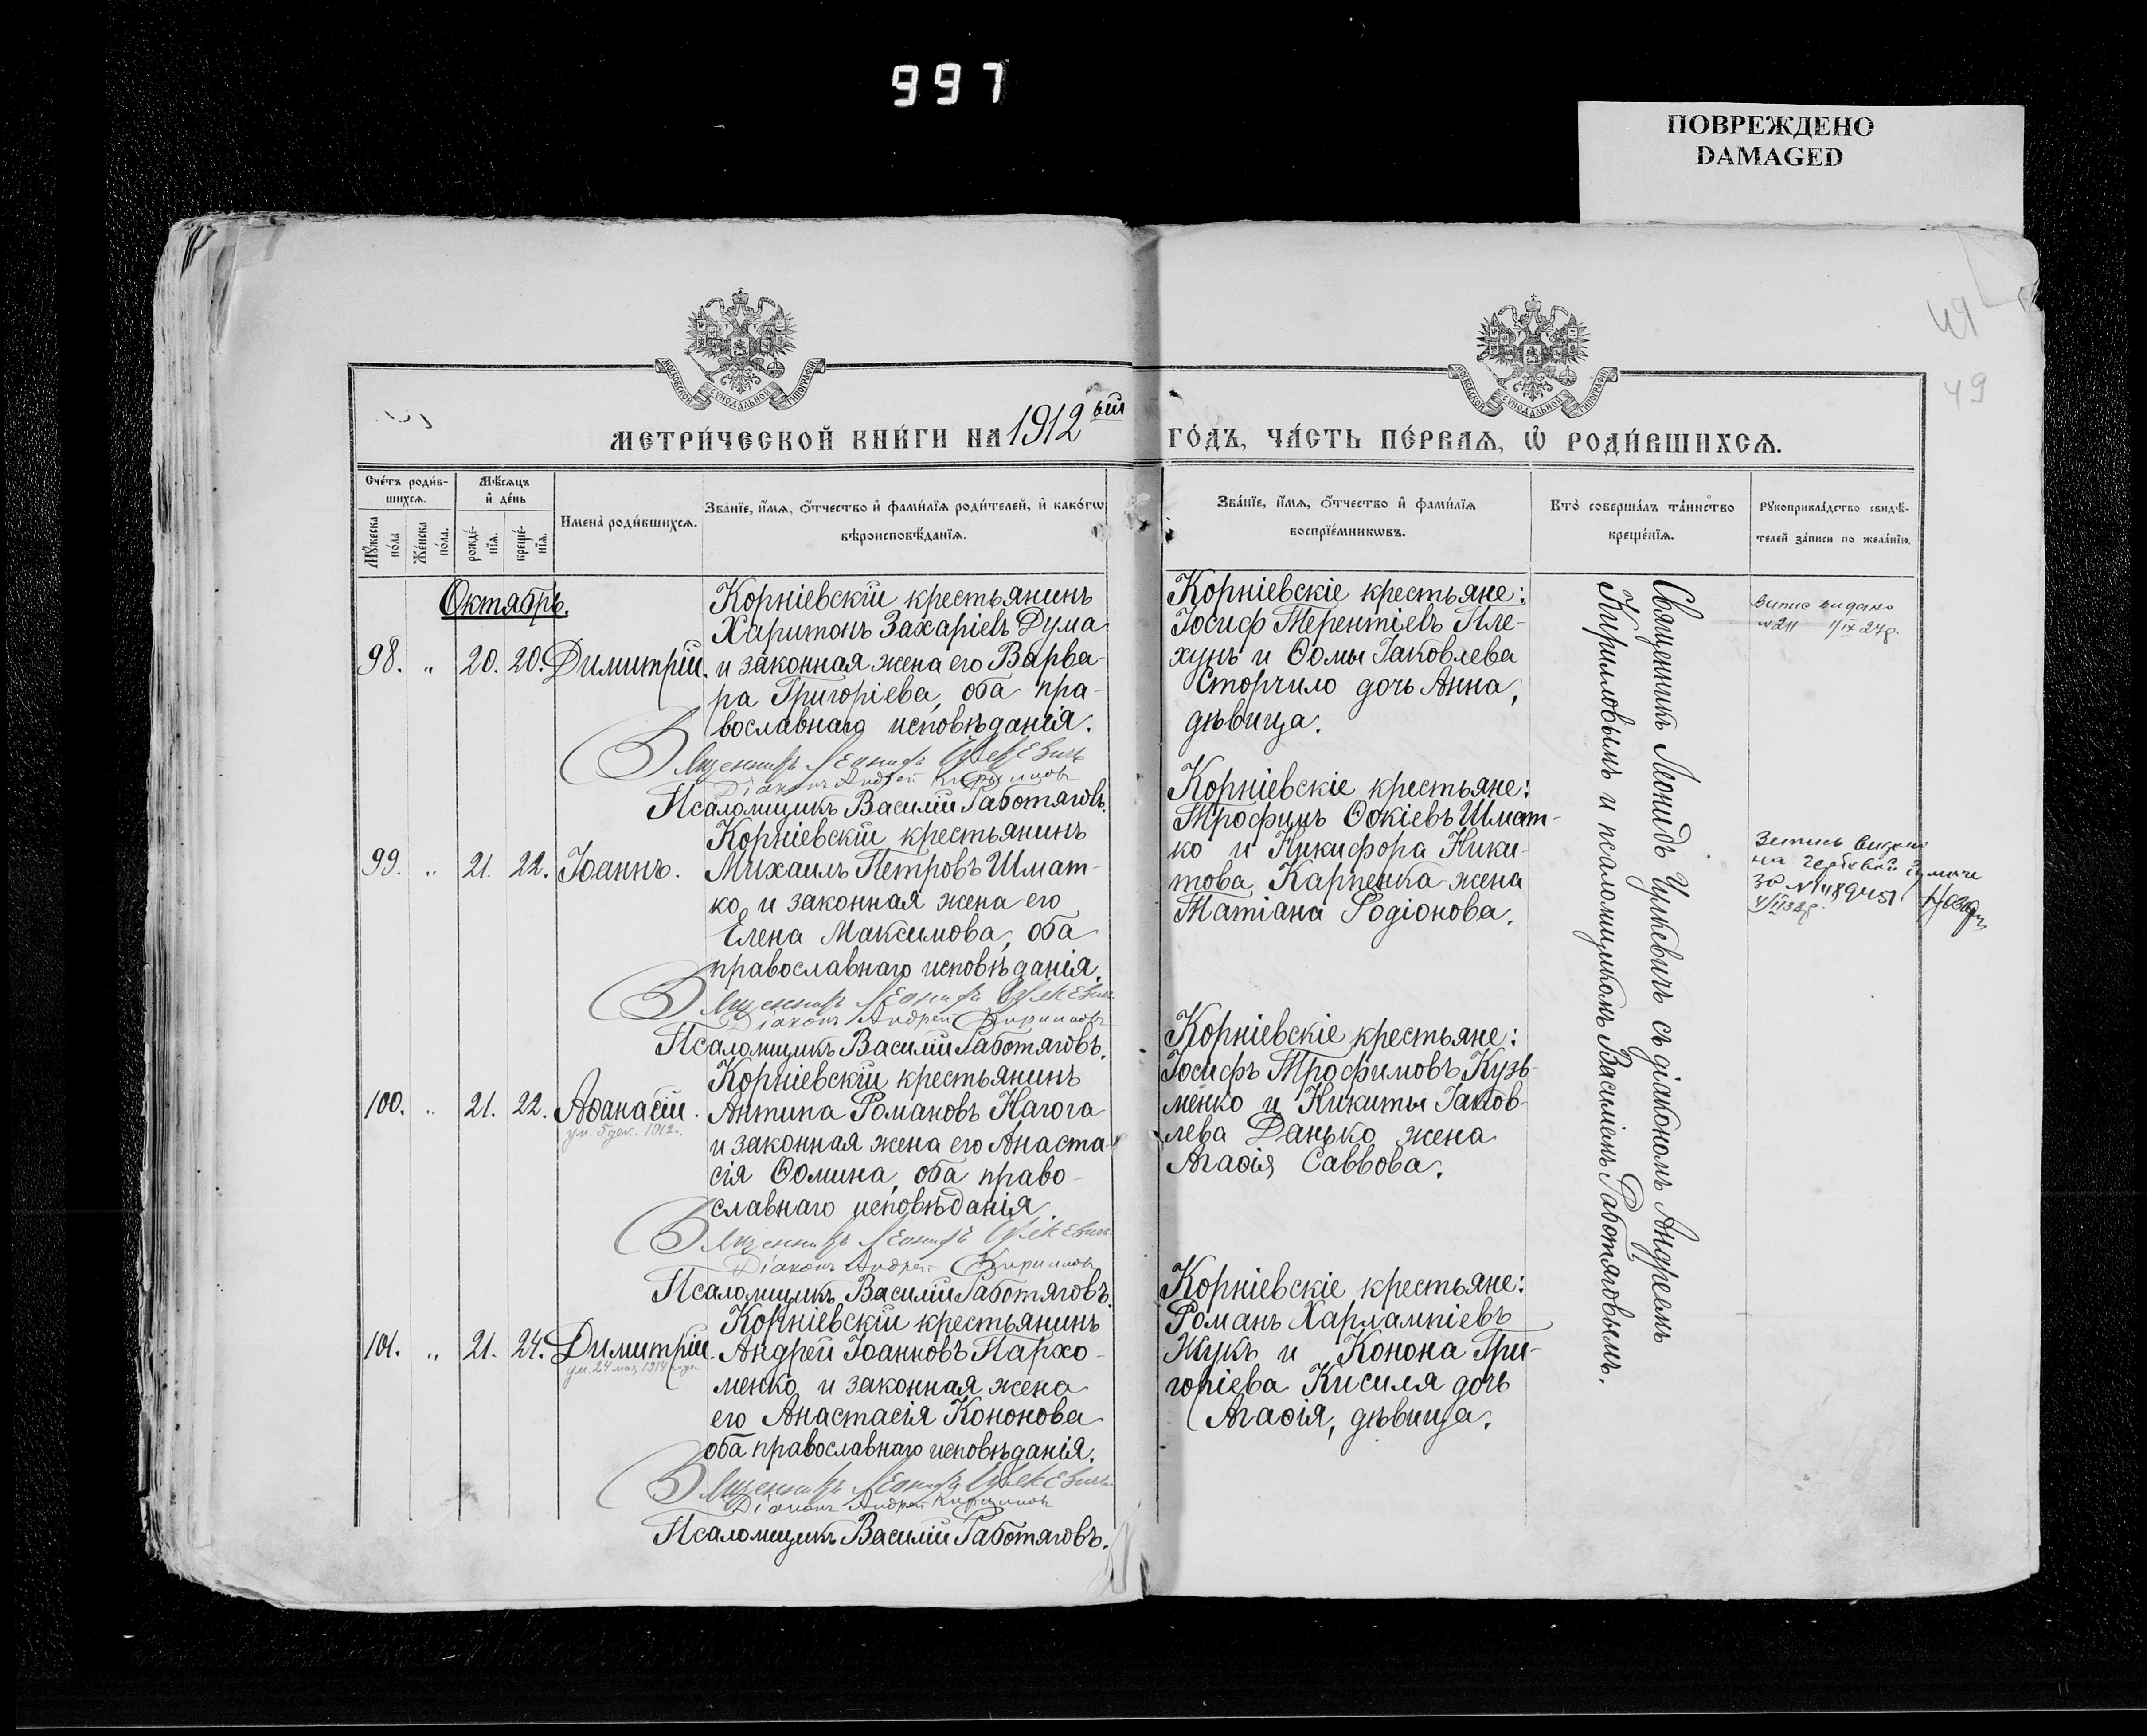 997
ПОВРЕЖДЕНО
DAMAGED
49
49
МОСКОВСКОЙ СѴНОДАЛЬНОЙ ТИПОГРАФІИ
МОСКОВСКОЙ СѴНОДАЛЬНОЙ ТИПОГРАФІИ
МЕТРИ́ЧЕСКОЙ КНИ́ГИ НА 1912ый
ГО́ДЪ, ЧА́СТЬ ПЕ́РВАѦ, Ѽ РОДИ́ВШИХСѦ.
Сче́тъ роди́в-
шихсѧ.
Мꙋ́жеска
по́ла
Же́нска
по́ла.
Мѣ́сѧцъ
и҆ де́нь
рожде́-
нїѧ.
креще́-
нїѧ.
Имена̀ роди́вшихсѧ.
Зва́нїе, и҆́мѧ, ѻ҆́тчество и҆ фами́лїѧ роди́телей, и҆ како́гѡ
вѣроисповѣ́данїѧ.
Зва́нїе, и҆́мѧ, ѻ҆́тчество и҆ фами́лїѧ
воспрїе́мникѡвъ.
Кто̀ соверша́лъ та́инство
креще́нїѧ.
Рꙋкоприкла́дство свидѣ́-
телей за́писи по жела́нїю.
Октябрь.
98. " 20. 20. Димитрій.
Корніевскій крестьянинъ
Харитонъ Захаріевъ Дума
и законная жена его Варва-
ра Григоріева, оба пра-
вославнаго исповѣданія.
Священникъ Леонидъ Цулкевичъ
Діаконъ Андрей Кириловъ
Псаломщикъ Василій Работяговъ.
Корніевскіе крестьяне:
Іосиф Терентіевъ Пле-
хунъ и Ѳомы Іаковлева
Сторчило дочь Анна,
дѣвица.
Священникъ Леонидъ Цулкевичъ съ діакономъ Андреемъ
Кириловымъ и псаломщикомъ Василіемъ Работяговымъ.
Випис видано
№ 211 1/IX 24р.
99. " 21. 22. Іоаннъ.
Корніевскій крестьянинъ
Михаилъ Петровъ Шмат-
ко, и законная жена его
Елена Максимова, оба
православнаго исповѣданія.
Священникъ Леонидъ Цулкевичъ
Діаконъ Андрей Кириловъ
Псаломщикъ Василій Работяговъ.
Корніевскіе крестьяне:
Трофимъ Ѳокіевъ Шмат-
ко и Никифора Ники-
това Карпенка жена
Татіана Родіонова.
на
за №
100. " 21. 22. Аѳанасій.
ум. 5 дек. 1912.
Корніевскій крестьянинъ
Антипа Романовъ Нагога
и законная жена его Анаста-
сія Ѳомина, оба право-
славнаго исповѣданія.
Священникъ Леонидъ Цулкевичъ
Діаконъ Андрей Кириловъ
Псаломщикъ Василій Работяговъ.
Корніевскіе крестьяне:
Іосифъ Трофимовъ Кузь-
менко и Никиты Іаков-
лева Данько жена
Агаѳія Саввова.
101. " 21. 24. Димитрій.
ум. 24 мая 1914 года
Корніевскій крестьянинъ
Андрей Іоанновъ Пархо-
менко и законная жена
его Анастасія Кононова
оба православнаго исповѣданія.
Священникъ Леонидъ Цулкевичъ
Діаконъ Андрей Кириловъ
Псаломщикъ Василій Работяговъ.
Корніевскіе крестьяне:
Романъ Харлампіевъ
Жукъ и Конона Гри-
горіева Кисиля дочь
Агаѳія, дѣвица.